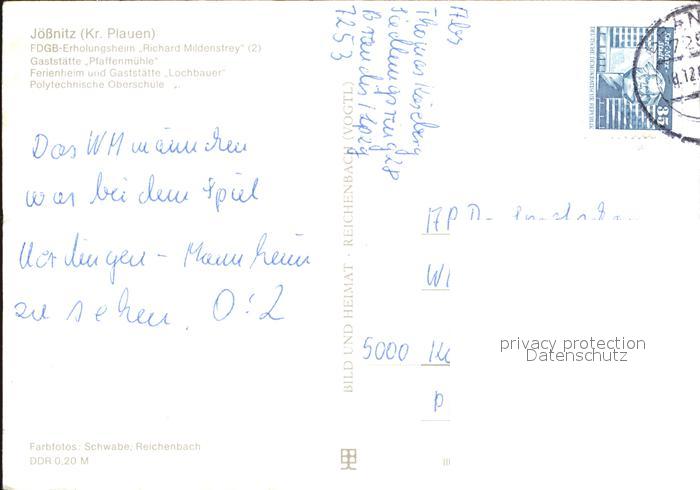 Jößnitz (Kr. Plauen)
FDGB-Erholungsheim „Richard Mildenstrey" (2)
Gaststätte „Pfaffenmühle"
Ferienheim und Gaststätte „Lochbauer"
Polytechnische Oberschule
Das WM männchen
war bei dem Spiel
Uerdingen - Mannheim
zu sehen. 0:2
Farbfotos: Schwabe, Reichenbach
DDR 0,20 M
BILD UND HEIMAT · REICHENBACH (VOGTL)
Abs
Thomas
Siedlungsring 28
Brandis
7253
85
5000
privacy protection
Datenschutz